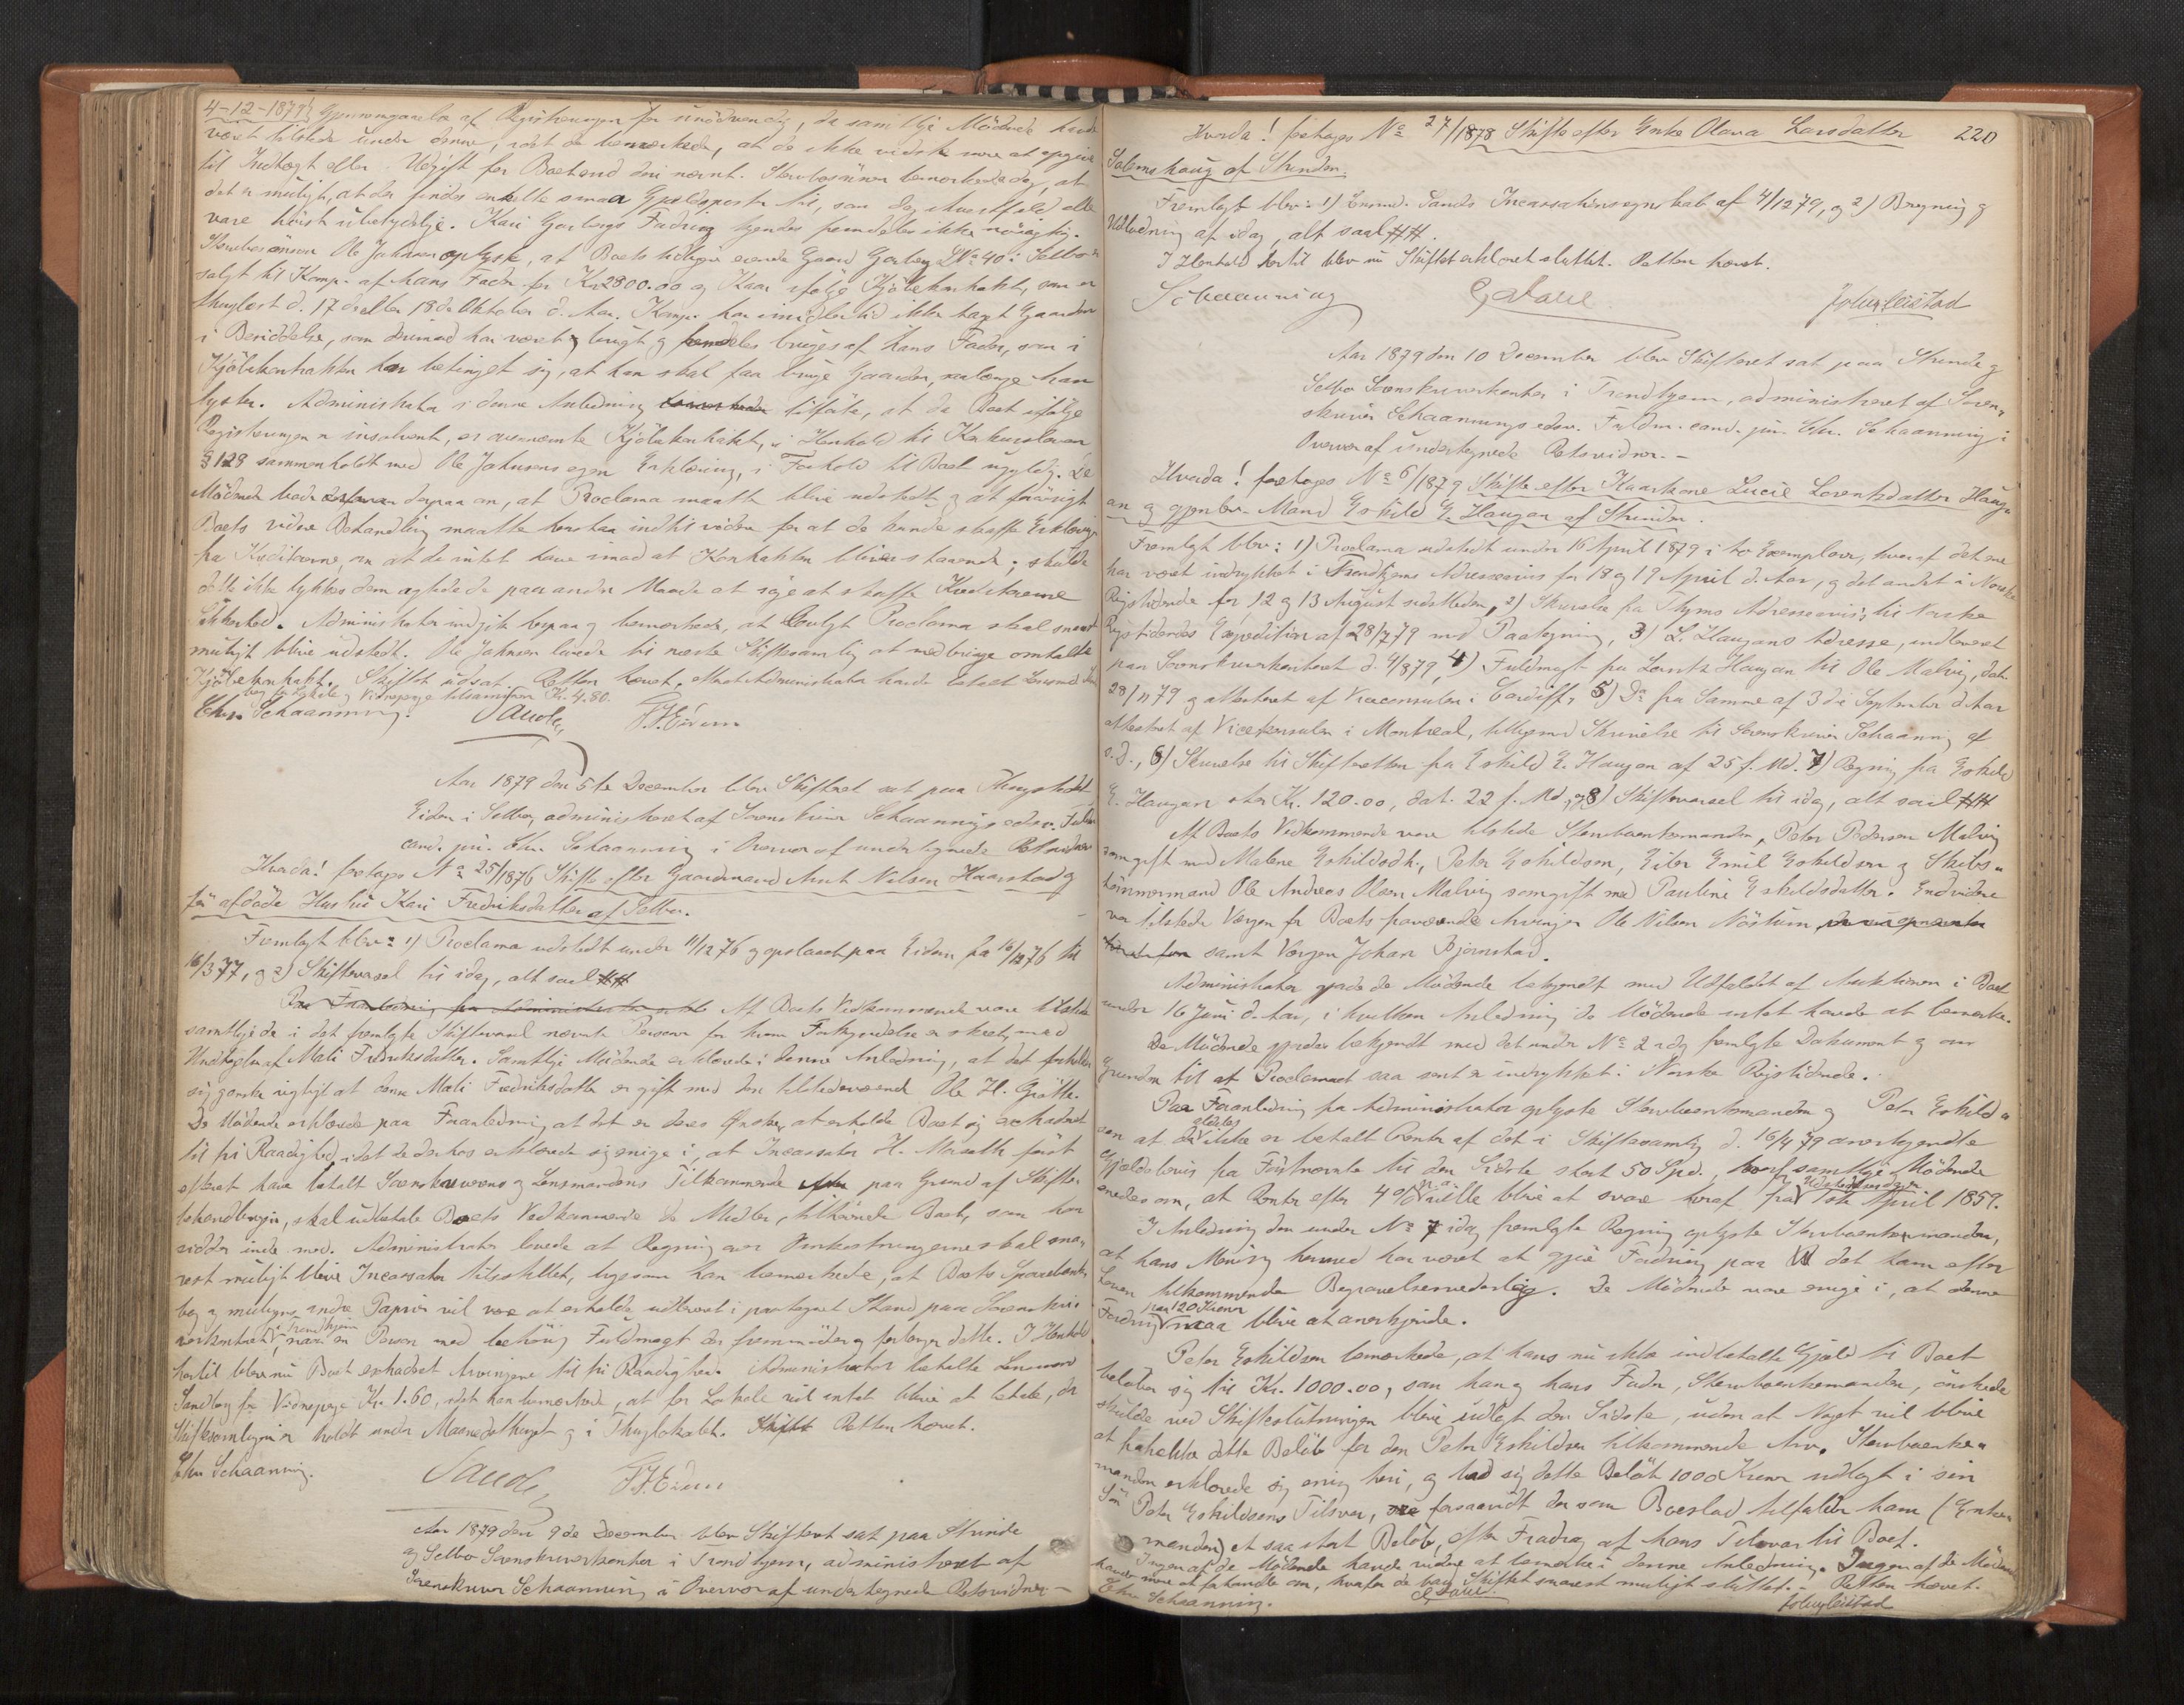 4-12-1879} Gjennemgaaelse af Registreringen for unödvendig, da samtlige Mödende havde
været tilstede under denne, idet de bemærkede, at de ikke vidste mere at opgive
til Indtægt eller Udgift for Boet end deri nævnt. Stervbosönnen bemærkede dog, at
det er muligt, at der findes enkelte smaa Gjældsposter til, som dog ialfald alle
vare höist ubetydelige. Kari Garbergs Fordring kjendes fremdeles ikke nöiagtig.
Stervbosönnen Ole Johnsen oplyste, at Boets tidligere eiende Gaard Garberg LNo 40 i Selbo er
solgt til Komp. af hans Fader for Kr 2800.00 og Kaar ifölge Kjöbekontrakt, som er
thinglæst d. 17de eller 18de Oktober d. Aar. Komp. har imidlertid ikke tagt Gaarden
i Besiddelse, som derimod har været brugt og fremdeles bruges af hans Fader, som i
Kjöbekontrakten har betinget sig, at han skal faa bruge Gaarden, saalænge han
lyster. Administrator i denne Anledning tilföiede, at da Boet ifölge
Registreringen er insolvent, er ovennævnte Kjöbekontrakt, i Henhold til Konkurslovens
§ 128 sammenholdt med Ole Johnsens egen Erklæring, i Forhold til Boet ugyldig. De
Mödende bade derpaa om, at Proclama maatte blive udstedt og at forövrigt
Boets videre Behandling maatte bero indtil videre for at de kunde skaffe Erklæring
fra Kreditorerne, om at de intet have imod at Kontrakten bliver staaende; skulde
dette ikke lykkes dem agtede de paa anden Maade at söge at skaffe Kreditorerne
Sikkerhed. Administrator indgik herpaa og bemærkede, at Lovligt Proclama skal snarest
muligt blive udstedt. Ole Johnsen lovede til næste Skiftesamling at medbringe omtalte
Kjöbekontrakt. Skiftet udsat. Retten hævet, efterat Administrator havde betalt Lensmd. Sand-
berg for Lokale og Vidnepenge tilsammen Kr. 4.80.
Chr. Schaanning. Saude, T. Eidem
Aar 1879 den 5te December blev Skifteret sat paa Thingstedet
Eidem i Selbo, administreret af Sorenskriver Schaannings edsv. Fuldm.
cand. jur. Chr. Schaanning i Overvær af undertegnede Retsvidner
Hvorda! foretoges No 25/1876 Skifte efter Gaardmand Arnt Nilsen Haarstad og
för afdöde Hustru Kari Fredriksdatter af Selbo.
Fremlagt blev: 1) Proclama udstedt under 11/12 76 og opslaaet paa Eidem fra 16/12 76 til
16/3 77, og 2) Skiftevarsel til idag, alt saal. ##
Af Boets Vedkommende vare tilstede
samtlige de i det fremlagte Skiftevarsel nævnte Personer for hvem Forkyndelse er skeet, med
Undtagelse af Mali Fredriksdatter. Samtlige Mödende erklærede i denne Anledning, at det forholder
sig ganske rigtigt at denne Mali Fredriksdatter er gift med den tilstedeværende Ole H. Grötte.
De Mödende erklærede paa Foranledning at det er deres Önske, at erholde Boet sig extraderet
til fri Raadighed, idet de derhos erklærede sig enige i, at Incassator H. Moseth först
efterat have betalt Sorenskriverens og Lensmandens Tilkommende paa Grund af Skifte-
behandlingen, skal udbetale Boets Vedkommende de Midler, tilhörende Boet, som han
sidder inde med. Administrator lovede at Regning over Omkostningerne skal sna-
rest muligt blive Incassator tilstillet, ligesom han bemærkede, at Boets Sparebank-
bog og muligens andre Papirer vil være at erholde udleveret i paategnet Stand paa Sorenskri-
verkontoret i Trondhjem, naar en Person med behörig Fuldmagt der fremmöder og forlanger dette. I Henhold
hertil blev nu Boet extraderet Arvingerne til fri Raadighed. Administrator betalte Lensmand
Sandberg for Vidnepenge Kr. 1.60, idet han bemærkede, at for Lokale vil intet blive at betale, da
Skiftesamlingen er holdt under Maanedsthinget og i Thinglokalet. Retten hævet.
Chr Schaanning. Saude, T. Eidem
Aar 1879 den 9de December blev Skifteret sat paa Strinde
og Selbo Sorenskriverkontor i Trondhjem, administreret af
Sorenskriver Schaanning i Overvær af undertegnede Retsvidner –
Hvorda! foretoges No 27/1878 Skifte efter Enke Olava Larsdatter 220
Salomshaug af Strinden.
Fremlagt blev: 1) Lensmd. Sands Incassationsregnskab af 4/12 79, og 2) Beregning og
Udlodning af idag, alt saal. ##.
I Henhold hertil blev nu Skiftet erklæret sluttet. Retten hævet.
Schaanning
Aar 1879 den 10 December blev Skifteret sat paa Strinde og
Selbo Sorenskriverkontor i Trondhjem, administreret af Soren-
skriver Schaannings edsv. Fuldm. cand. jur. Chr. Schaanning i
Overvær af undertegnede Retsvidner. –
Hvorda! foretoges No 6/1879 Skifte efter Kaarkone Lucie Lorentzdatter Haug-
an og gjenlev. Mand Eskild E. Haugan af Strinden.
Fremlagt blev: 1) Proclama udstedt under 16 April 1879 i to Exemplarer, hvoraf det ene
har været indrykket i Trondhjems Adresseavis for 18 og 19 April d. Aar, og det andet i Norske
Rigstidende for 12 og 13 August sidstleden, 2) Skrivelse fra Thjems Adresseavis, til Norske
Rigstidendes Expedition af 28/7 79 med Paategning, 3) L. Haugans Adresse, indleveret
paa Sorenskriverkontoret d. 4/8 79, 4) Fuldmagt fra Lorentz Haugan til Ole Malvig, dat.
28/11 79 og attesteret af Viceconsulen i Cardiff, 5) Do fra Samme af 3die September d. Aar
attesteret af Vicekonsulen i Montreal, tilligemed Skrivelse til Sorenskriver Schaanning af
s. d., 6) Skrivelse til Skifteretten fra Eskild E. Haugan af 25 f. Md. 7) Regning fra Eskild
E. Haugan stor Kr. 120.00, dat. 22 f. Md, og 8) Skiftevarsel til idag, alt saal ##
Af Boets Vedkommende vare tilstede Stervboenkemanden, Peter Pedersen Malvig
som gift med Malene Eskildsdtr., Peter Eskildsen, Eiler Emil Eskildsen og Skibs-
tömmermand Ole Andreas Olsen Malvig som gift med Pauline Eskildsdatter. Endvidere
var tilstede Værgen for Boets fraværende Arvinger Ole Nilsen Nöstum
samt Værgen Johan Bjørnstad.
Administrator gjorde de Mödende bekjendt med Udfaldet af Auktionen i Boet
under 16 Juni d. Aar, i hvilken Anledning de Mödende intet havde at bemærke.
De Mödende gjordes bekjendt med det under No 2 idag fremlagte Dokument og om
Grunden til at Proclamaet saa sent er indrykket i Norske Rigstidende.
Paa Foranledning fra Administrator oplyste Stervboenkemanden og Peter Eskild-
sen at der aldeles ikke er betalt Renter af det i Skiftesamling d. 16/4 79 anerkjendte
Gjældsbevis fra Förstnævnte til den Sidste stort 50 Spd., hvorfor samtlige Mödende
enedes om, at Renter efter 4 % p. a. ville blive at svare heraf fra Udstedelsesdagen 1ste April 1859.
I Anledning den under No 7 idag fremlagte Regning oplyste Stervboenkemanden,
at hans Mening hermed har været at gjöre Fordring paa det ham efter
Loven tilkommende Begravelsesvederlag. De Mödende vare enige i, at denne
Fordring paa 120 Kroner maa blive at anerkjende.
Peter Eskildsen bemærkede, at hans nu ikke indbetalte Gjæld til Boet
beløber sig til Kr. 1000.00, som han og hans Fader, Stervboenkemanden, önskede
skulde ved Skifteslutningen blive udlagt den Sidste, uden at Noget vil blive
at fratrække dette Belöb for den Peter Eskildsen tilkommende Arv. Stervboenke-
manden erklærede sig enig heri, og bad sig dette Belöb 1000 Kroner udlagt i sin
Sön Peter Eskildsens Tilsvar, forsaavidt der som Boeslod tilfalder ham (Enke-
manden) et saa stort Belöb, efter Fradrag af hans Tilsvar til Boet.
Ingen af de Mödende havde videre at bemærke i denne Anledning. Ingen af de Mödende
havde mere at forhandle om, hvorfor de bad Skiftet snarest muligt sluttet. – Retten hævet.
Chr Schaanning.